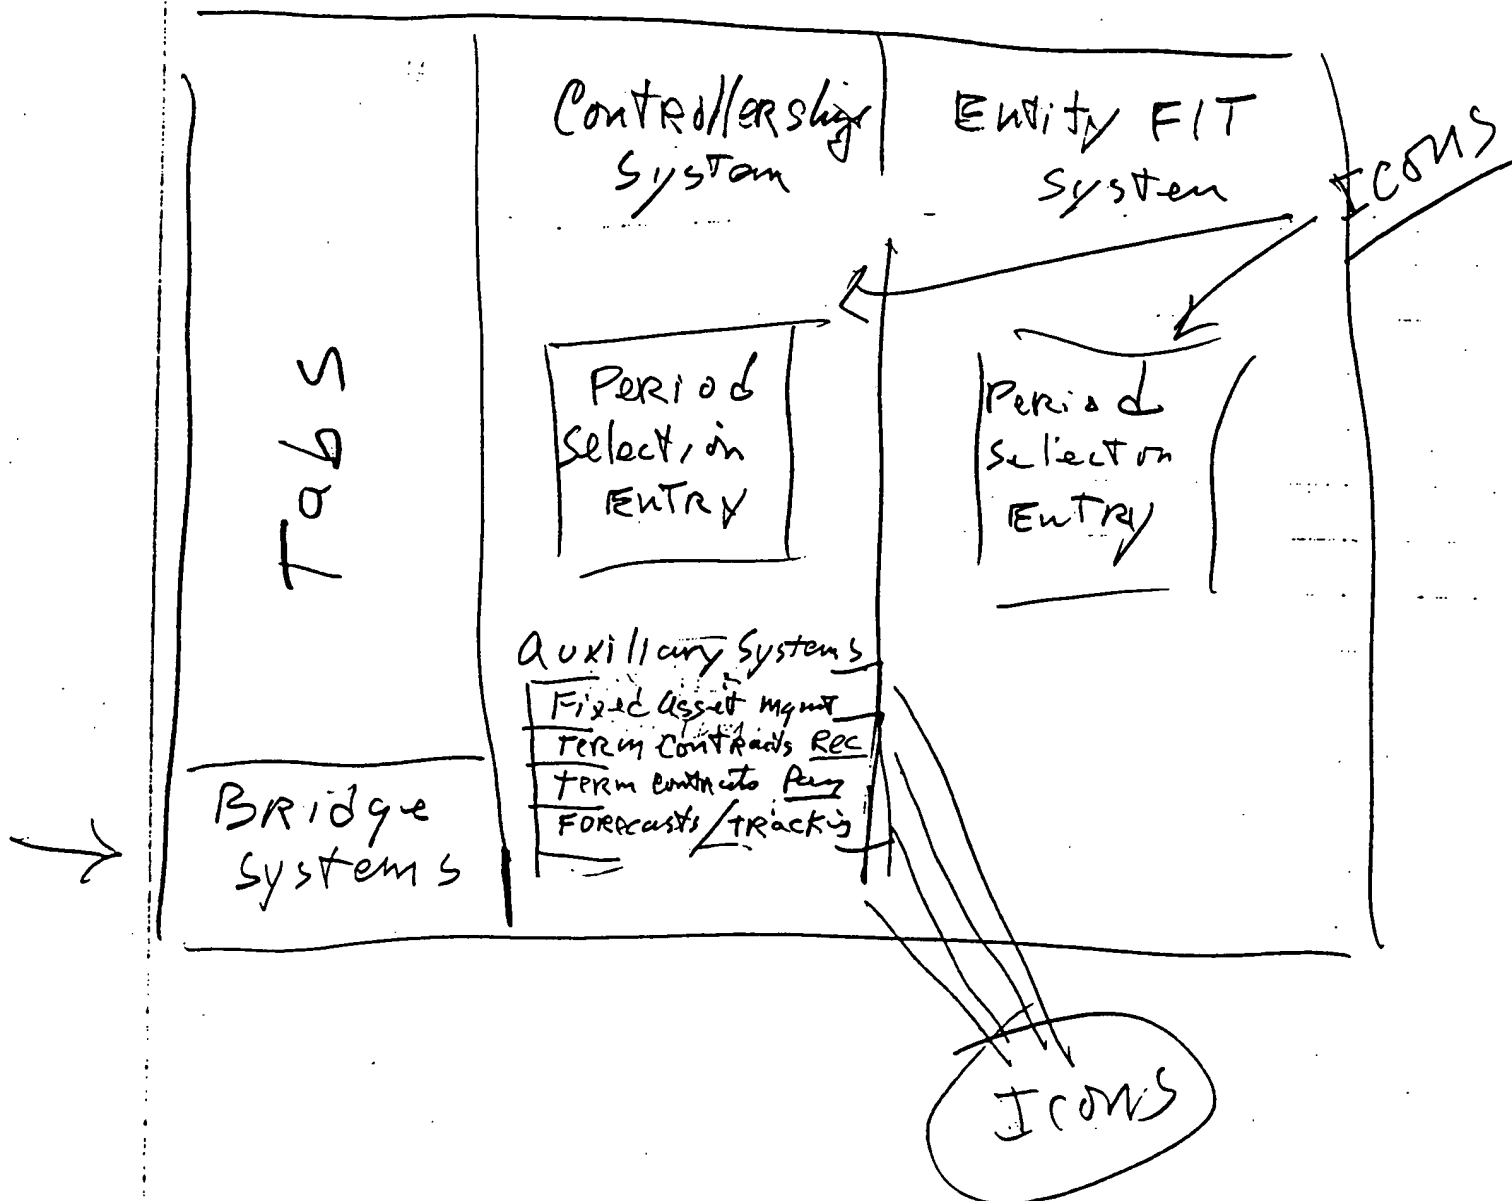 Controllership
System
Entity FIT
System
Icons
Tabs
Period
Selection
Entry
Period
Selection
Entry
Auxillary Systems
Fixed Asset Mgmt
Term Contracts Rec
Term Contracts Pay
Forecasts/Tracking
Bridge
Systems
Icons